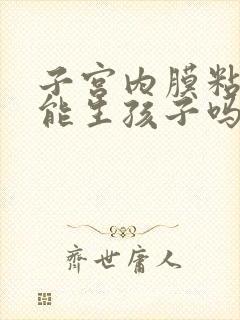 子宫内膜粘
能生孩子吗
齐世庸人